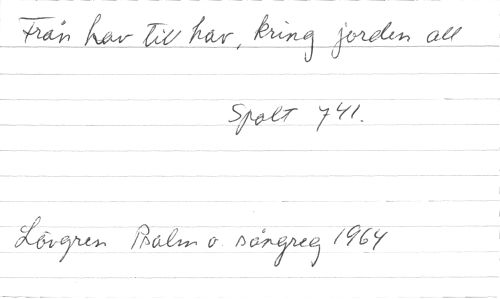 Från hav till hav, kring jorden all
Spalt 741.
Lövgren Psalm o. sångreg 1964